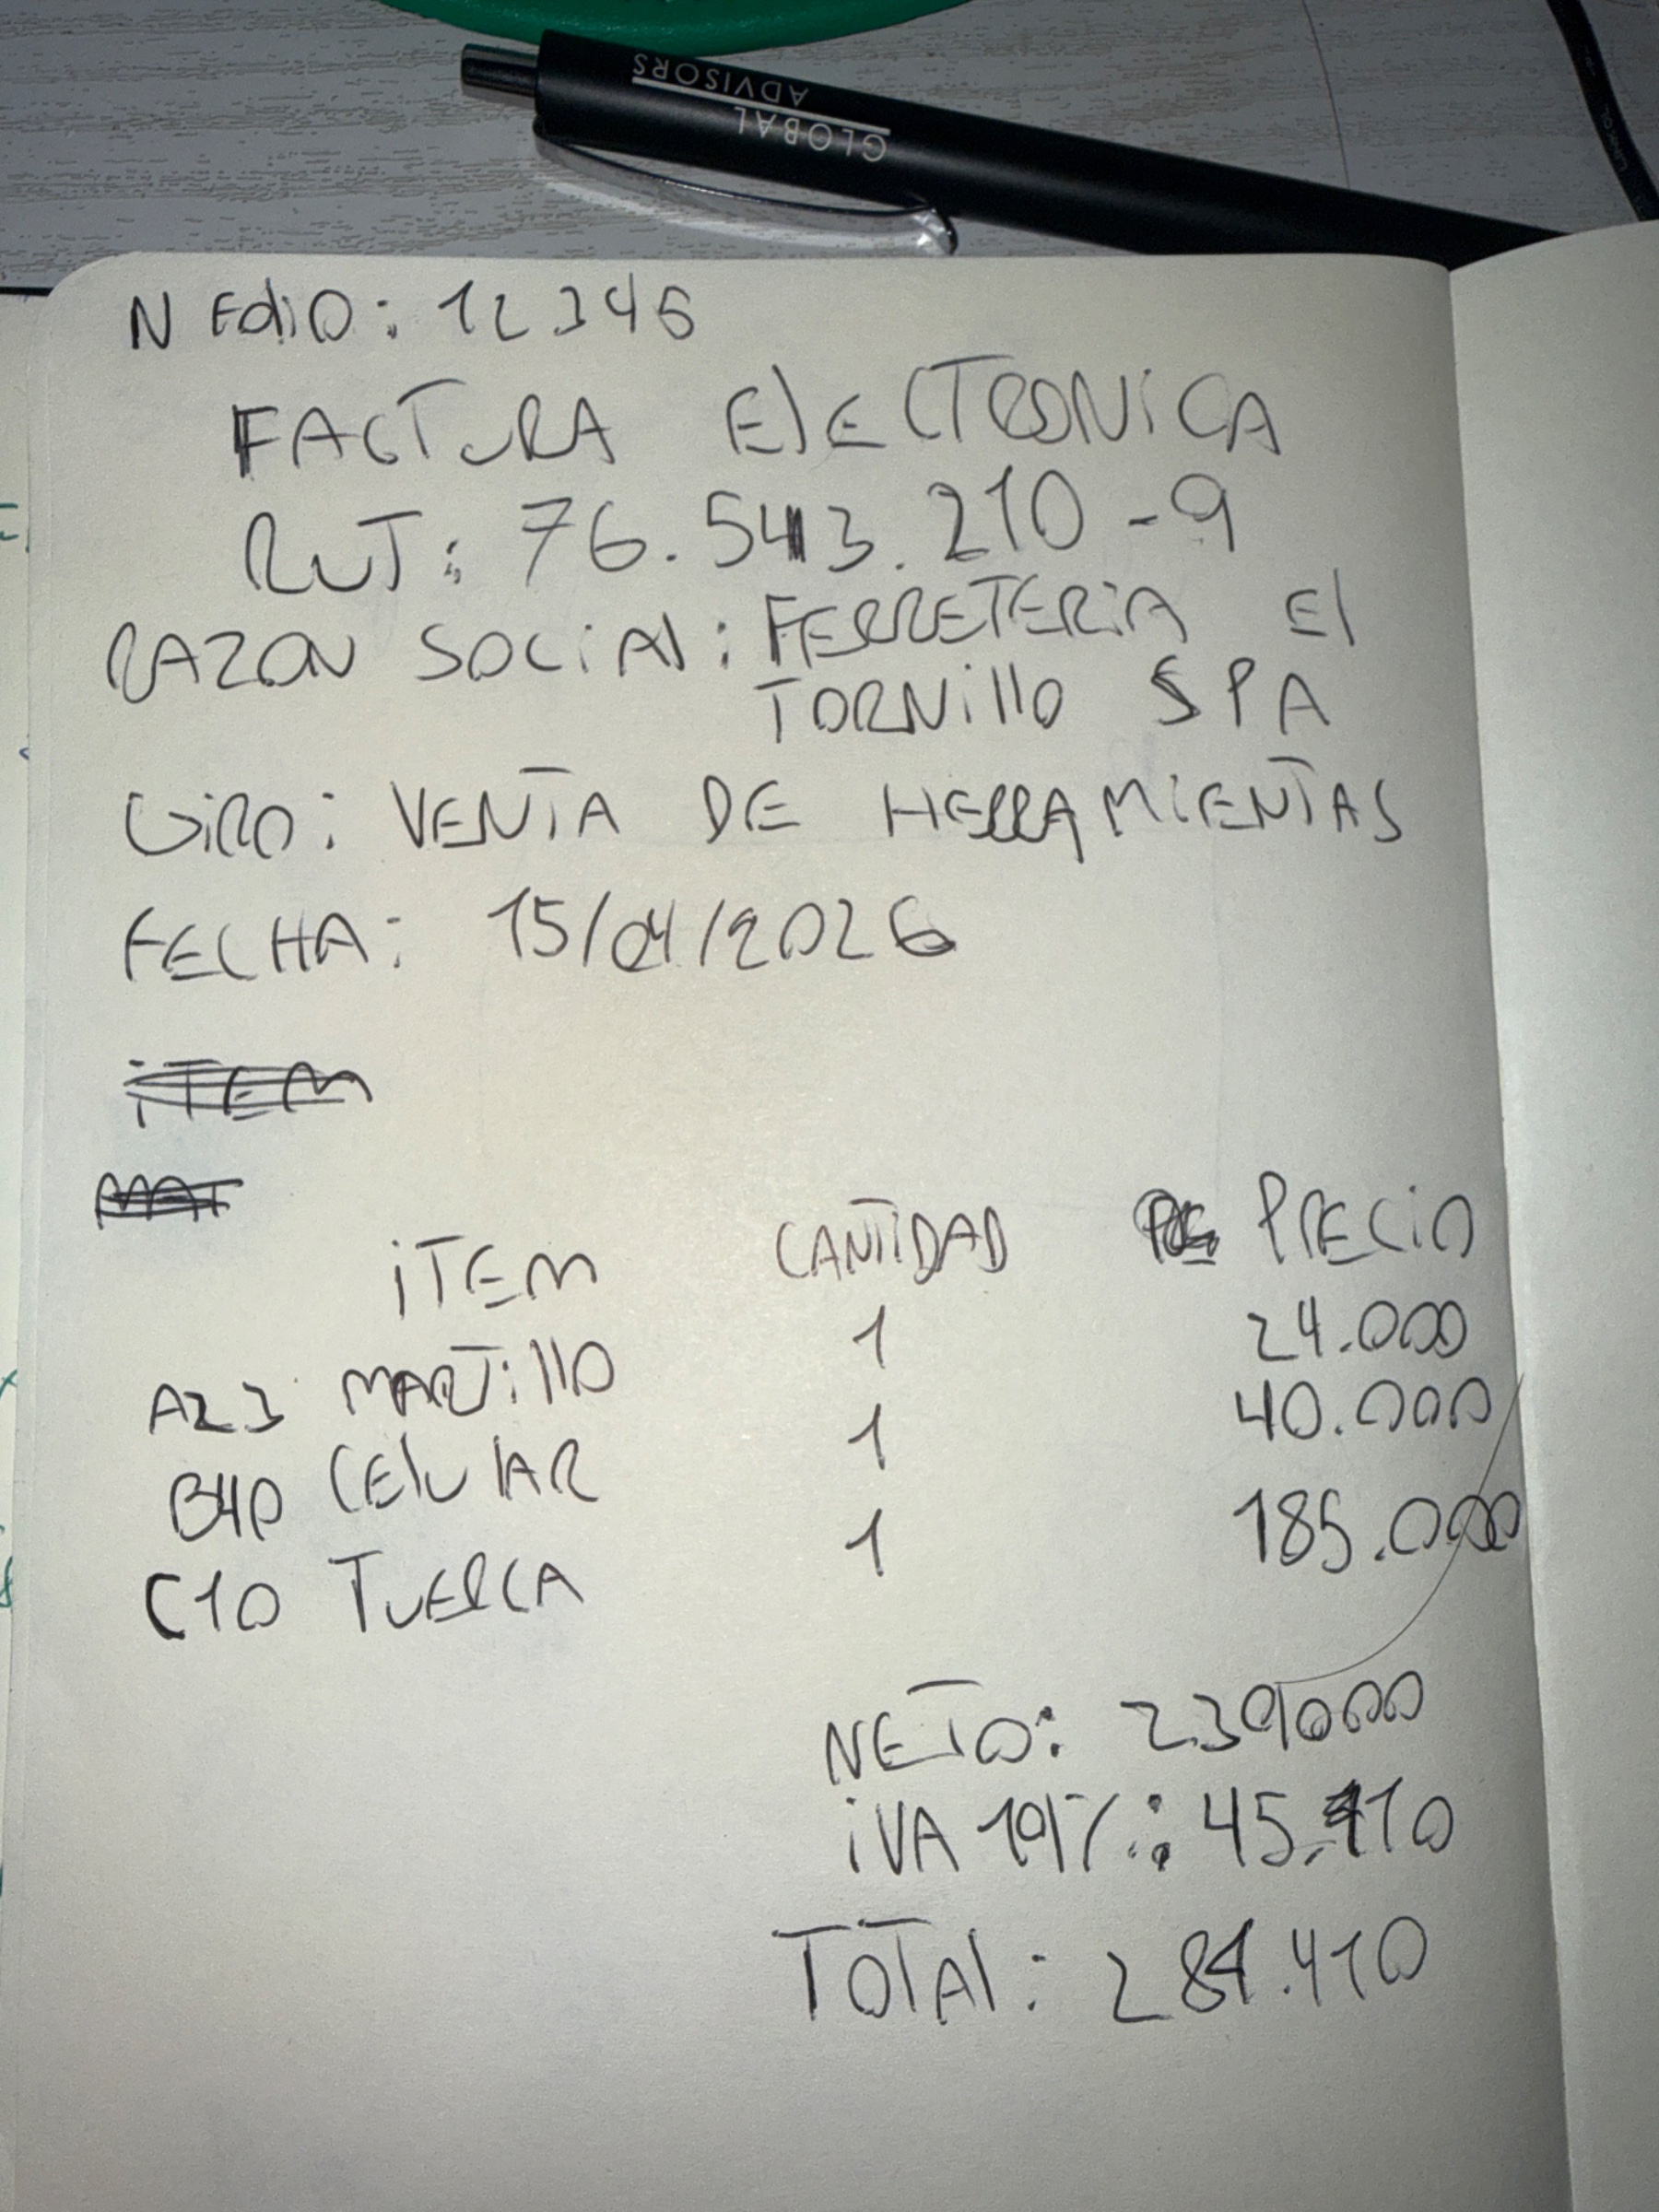 GLOBAL
ADVISORS
N FOLIO: 12345
FACTURA ElECTRONiCA
RUT: 76.543.210-9
RAZON SOCiAl: FERRETERiA El
TORNillO SPA
GiRO: VENTA DE HERRAMiENTAS
FECHA: 15/04/2026
iTEM
MAT
iTEM CANTiDAD PRECiO
A23 MARTillO 1 24.000
B40 CElUlAR 1 40.000
C10 TUERCA 1 185.000
NETO: 239000
iVA 19%: 45.410
TOTAl: 284.410